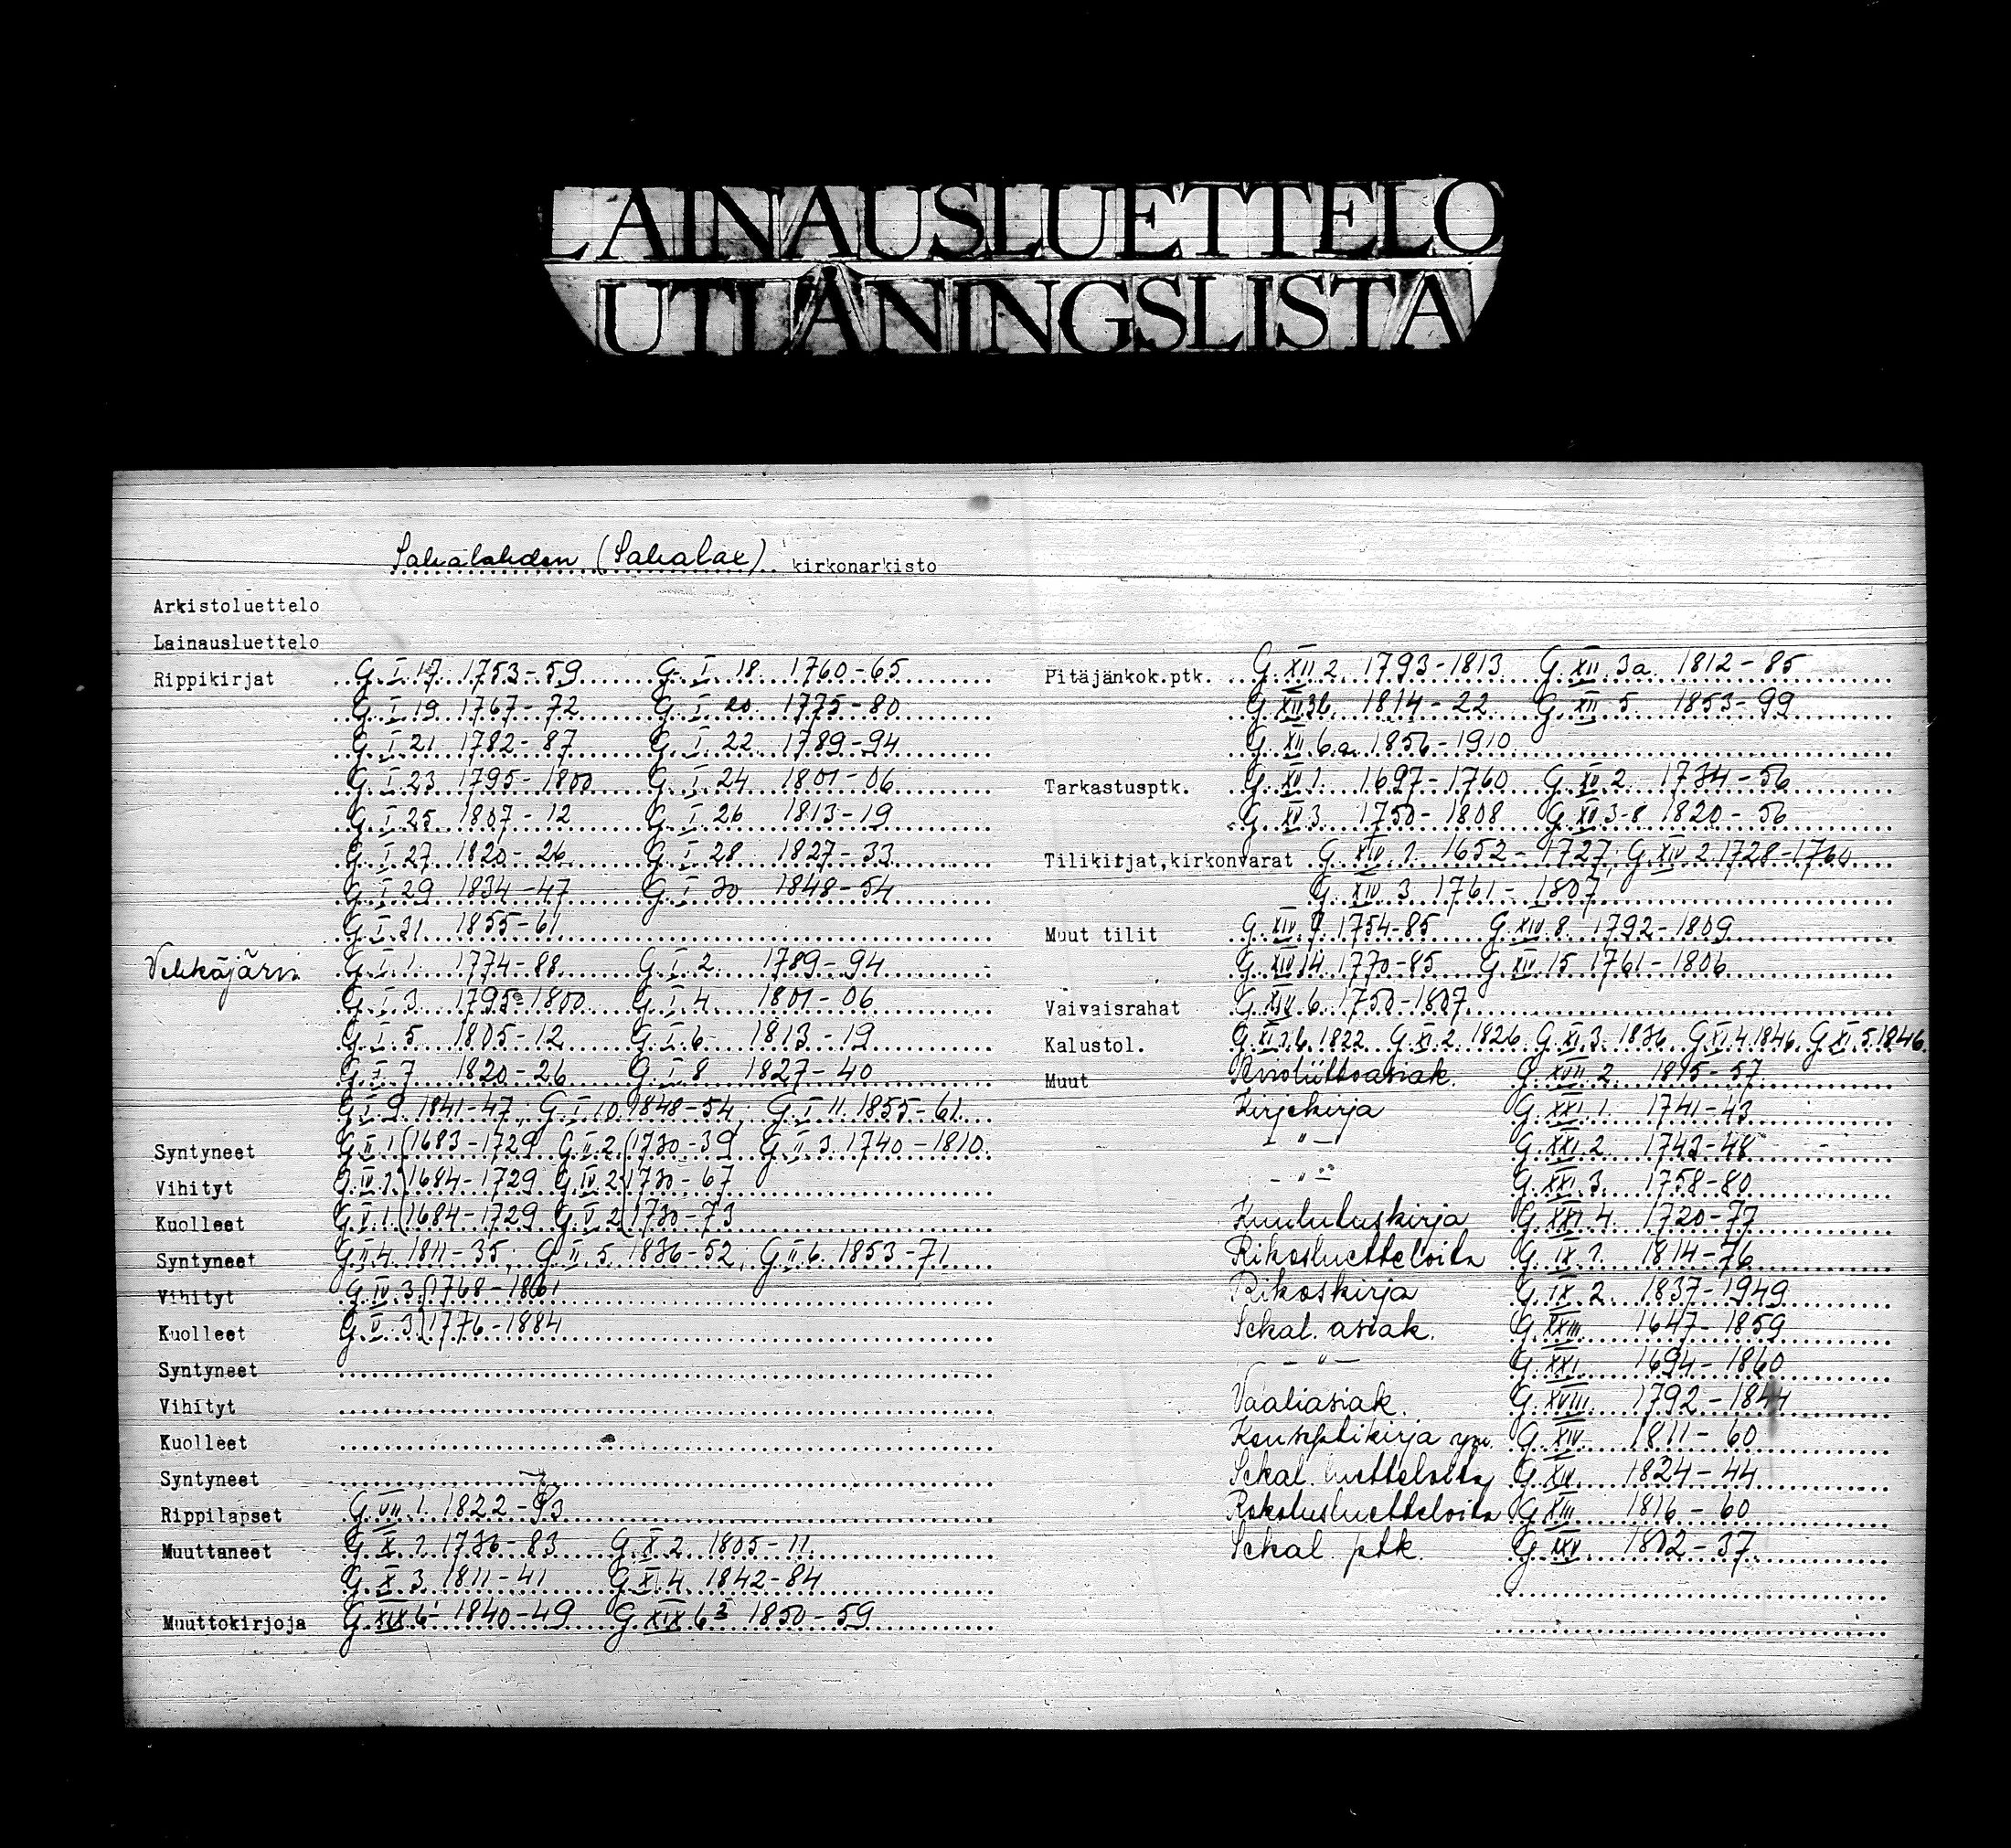 LAINAUSLUETTELO
UTLÅNINGSLISTA
Sahalahden (Sahalax) kirkonarkisto
Arkistoluettelo
Lainausluettelo
Rippikirjat G.I.17. 1753-59 G.I.18. 1760-65
G.I.19 1767-72 G.I.20. 1775-80
G.I.21 1782-87 G.I.22 1789-94
G.I.23 1795-1800 G.I.24 1801-06
G.I.25 1807-12 G.I.26 1813-19
G.I.27 1820-26 G.I.28 1827-33
G.I.29 1834-47 G.I.30 1848-54
G.I.31. 1855-61
G.I.1. 1774-88 G.I.2. 1789-94
G.I.3. 1795-1800 G.I.4. 1801-06
G.I.5 1805-12 G.I.6 1813-19
G.I.7 1820-26 G.I.8 1827-40
G.I.9. 1841-47; G.I.10. 1848-54; G.I.11. 1855-61.
Syntyneet G.II.1. (1683-1729 G.II.2. (1730-39 G.II.3. 1740-1810.
Vihityt G.IV.1. (1684-1729 G.IV.2. (1730-67
Kuolleet G.V.1. (1684-1729 G.V.2 (1730-73
Syntyneet G.II.4. 1811-35; G.II.5. 1836-52; G.II.6. 1853-71
Vihityt G.IV.3. (1768-1861
Kuolleet G.V.3. (1776-1884
Syntyneet
Vihityt
Kuolleet
Syntyneet
Rippilapset G.VII.1. 1822-93
Muuttaneet G.X.1. 1736-83 G.X.2. 1805-11
G.X.3. 1811-41 G.XI.4. 1842-84
Muuttokirjoja G.XIX 6¹ 1840-49 G.XIX 6² 1850-59
Pitäjänkok.ptk. G.XII.2. 1793-1813 G.XII.3a. 1812-85
G.XII.3b. 1814-22 G.XII.5. 1853-99
G.XII.6.a. 1856-1910
Tarkastusptk. G.XV.1. 1697-1760 G.XV.2. 1734-56
G.XV.3. 1750-1808 G.XV.3-8 1820-56
Tilikirjat,kirkonvarat G.XIV.1. 1652-1727; G.XIV.2. 1728-1760
G.XIV.3. 1761-1807
Muut tilit G.XIV.7. 1754-85 G.XIV.8. 1792-1809
G.XIV.14. 1770-85 G.XIV.15 1761-1806
Vaivaisrahat G.XIV.6. 1750-1807
Kalustol. G.XI.1.b. 1822 G.XI.2. 1826. G.XI.3. 1836. G.VI.4. 1846. G.XI.5. 1846.
Muut Avioliittoasiak. G.XVII.2. 1815-57
Kirjekirja G.XXI.1. 1741-43
- " - G.XXI.2. 1743-48
- " - G.XXI.3. 1758-80
Kuulutuskirja G.XXI.4. 1720-77
Rikosluetteloita G.IX.1. 1814-76
Rikoskirja G.IX.2. 1837-1949
Sekal. asiak. G.XXIII. 1647-1859
- " - G.XXI. 1694-1860
Vaaliasiak. G.XVIII. 1792-1844
Konseptikirja ym. G.XIV. 1811-60
Sekal. luetteloita G.XIV. 1824-44
Rokotusluetteloita G.XIII. 1816-60
Sekal. ptk. 1802-37